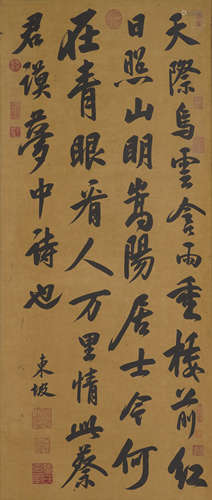 天際烏雲含雨重樓前紅
日照山明嵩陽居士今何
在青眼看人万里情此蔡
君謨夢中詩也
東坡